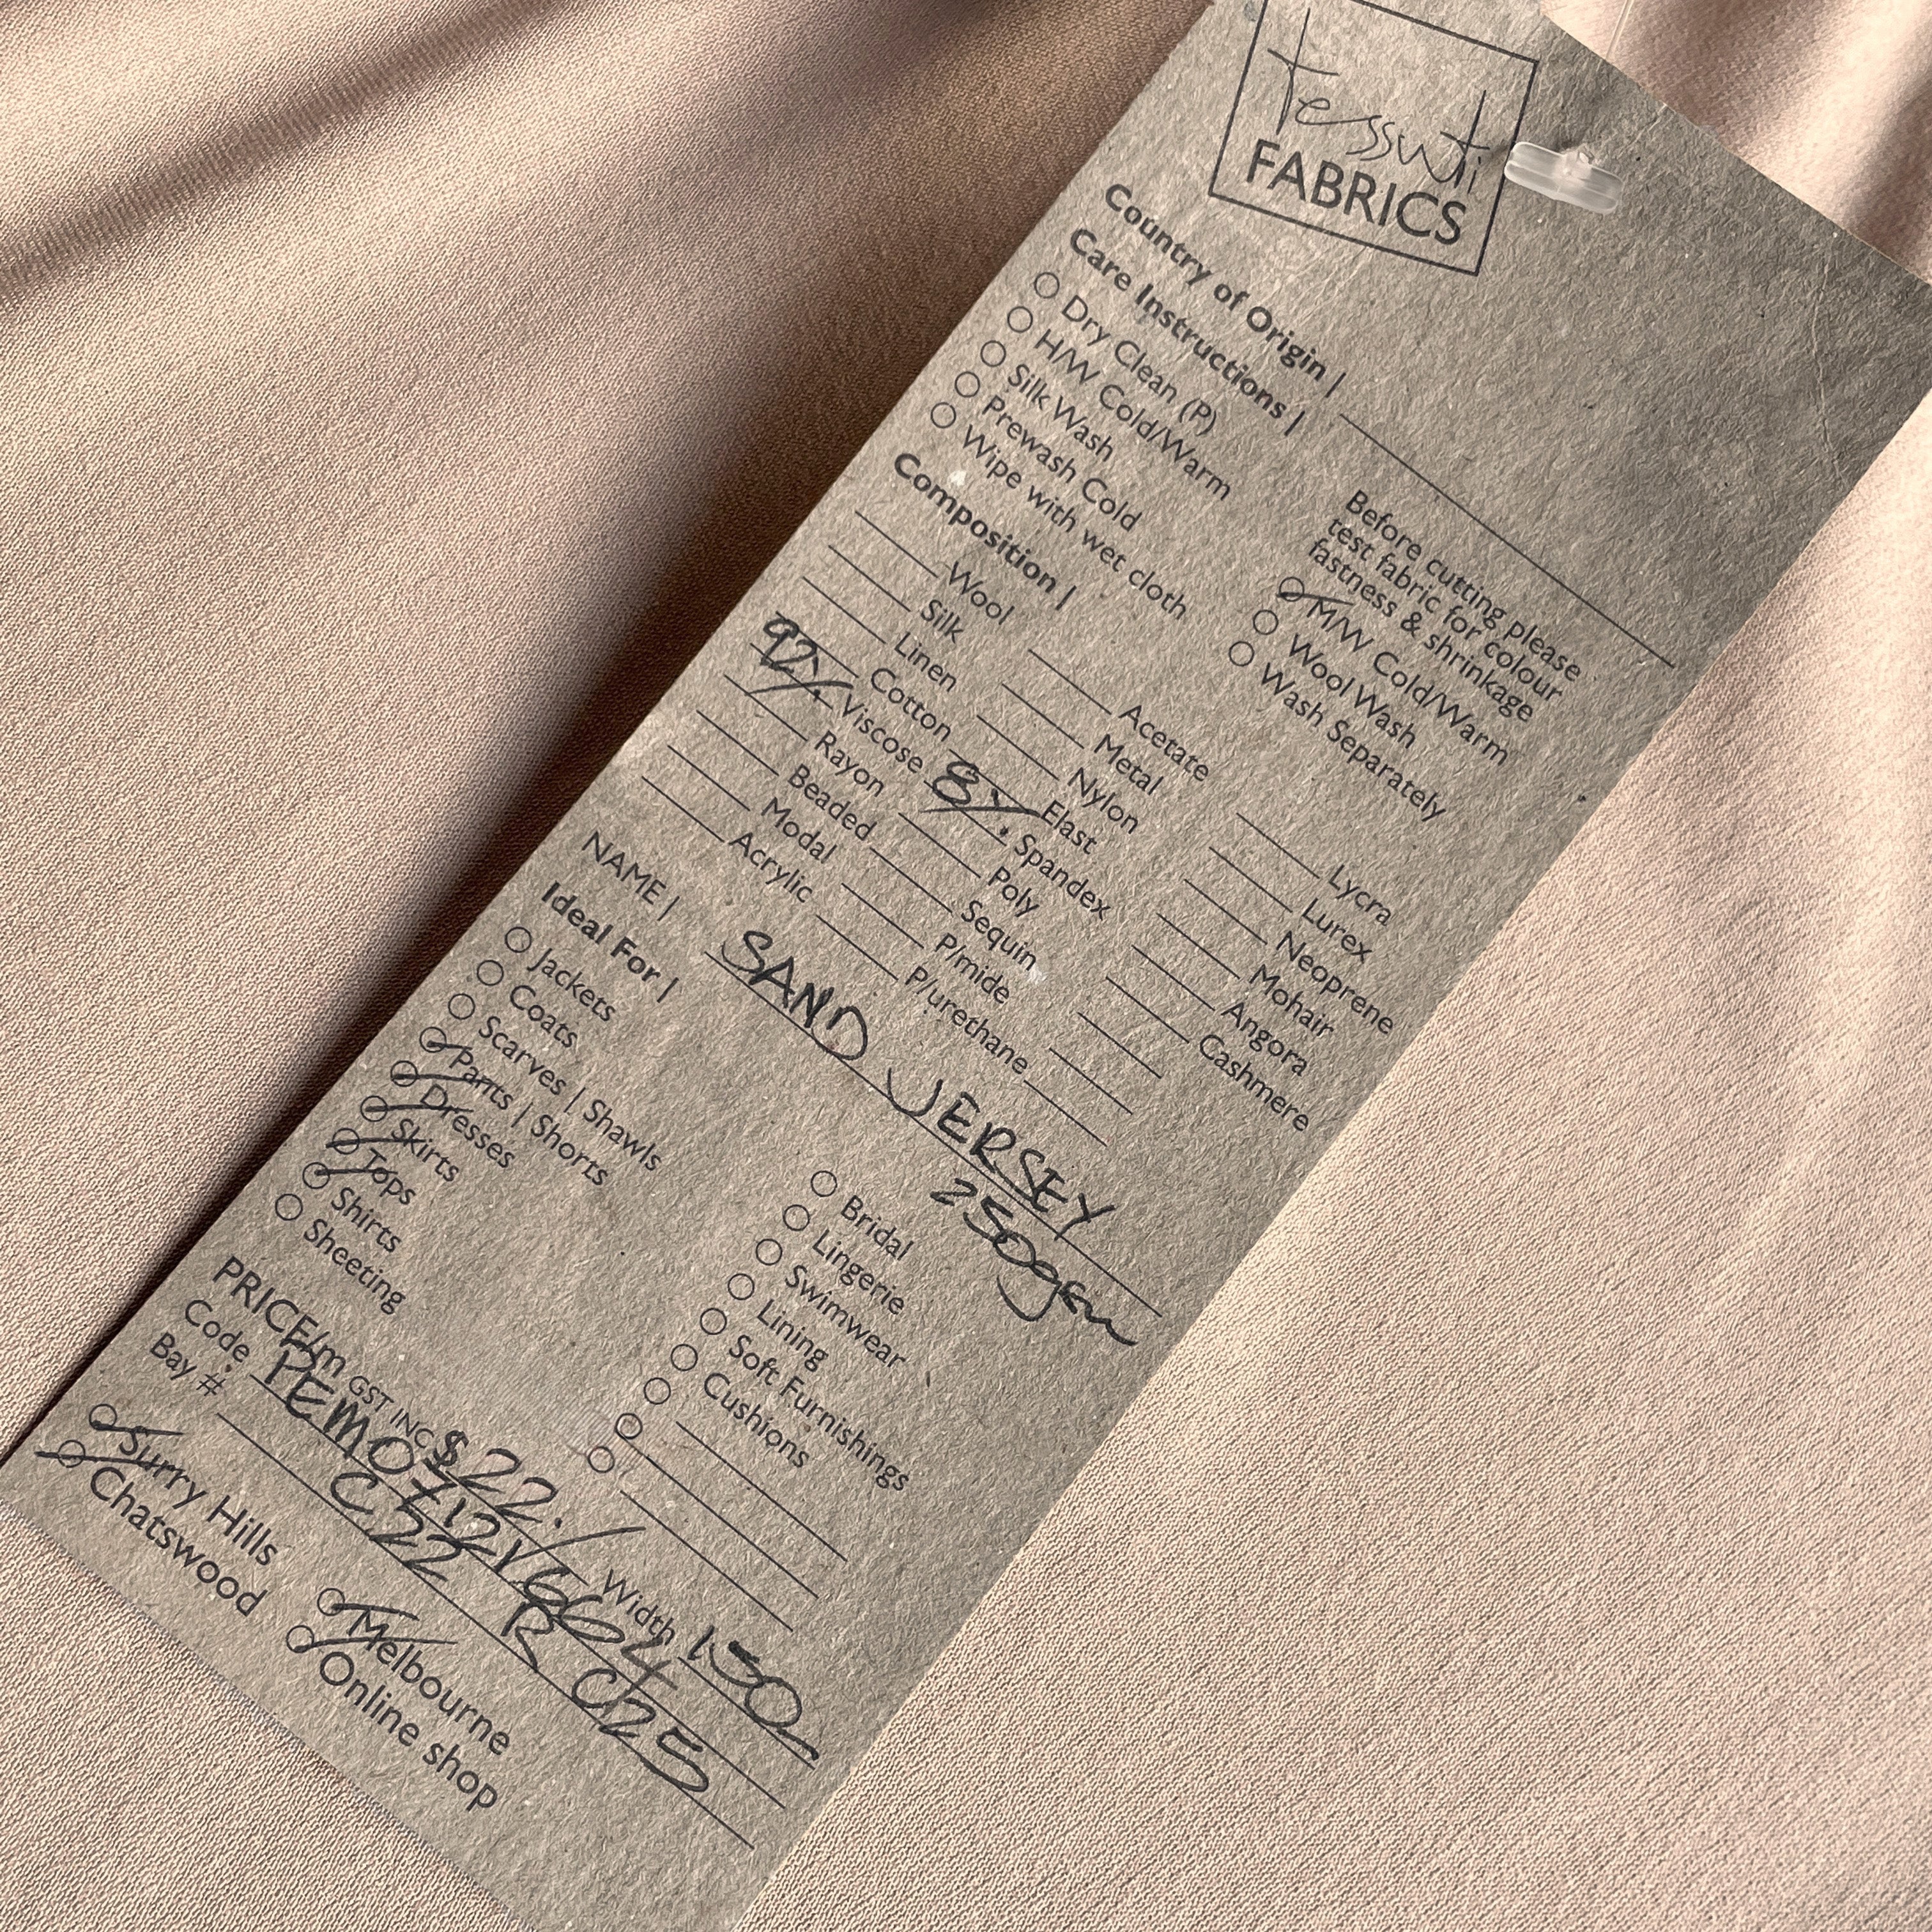 tessuti
FABRICS
Country of Origin |
Care Instructions |
Dry Clean (P)
H/W Cold/Warm
Silk Wash
Prewash Cold
Wipe with wet cloth
Before cutting please
test fabric for colour
fastness & shrinkage
M/W Cold/Warm
Wool Wash
Wash Separately
Composition |
Wool
Silk
Linen
Cotton
92% Viscose
Rayon
Beaded
Modal
Acrylic
Acetate
Metal
Nylon
8% Elast
Spandex
Poly
Sequin
P/mide
P/urethane
Lycra
Lurex
Neoprene
Mohair
Angora
Cashmere
NAME | SAND JERSEY
250gsm
Ideal For |
Jackets
Coats
Scarves | Shawls
Pants | Shorts
Dresses
Skirts
Tops
Shirts
Sheeting
Bridal
Lingerie
Swimwear
Lining
Soft Furnishings
Cushions
PRICE/m GST INC $22./ Width 150
Code
Bay # C22 R C25
Surry Hills
Chatswood
Melbourne
Online shop